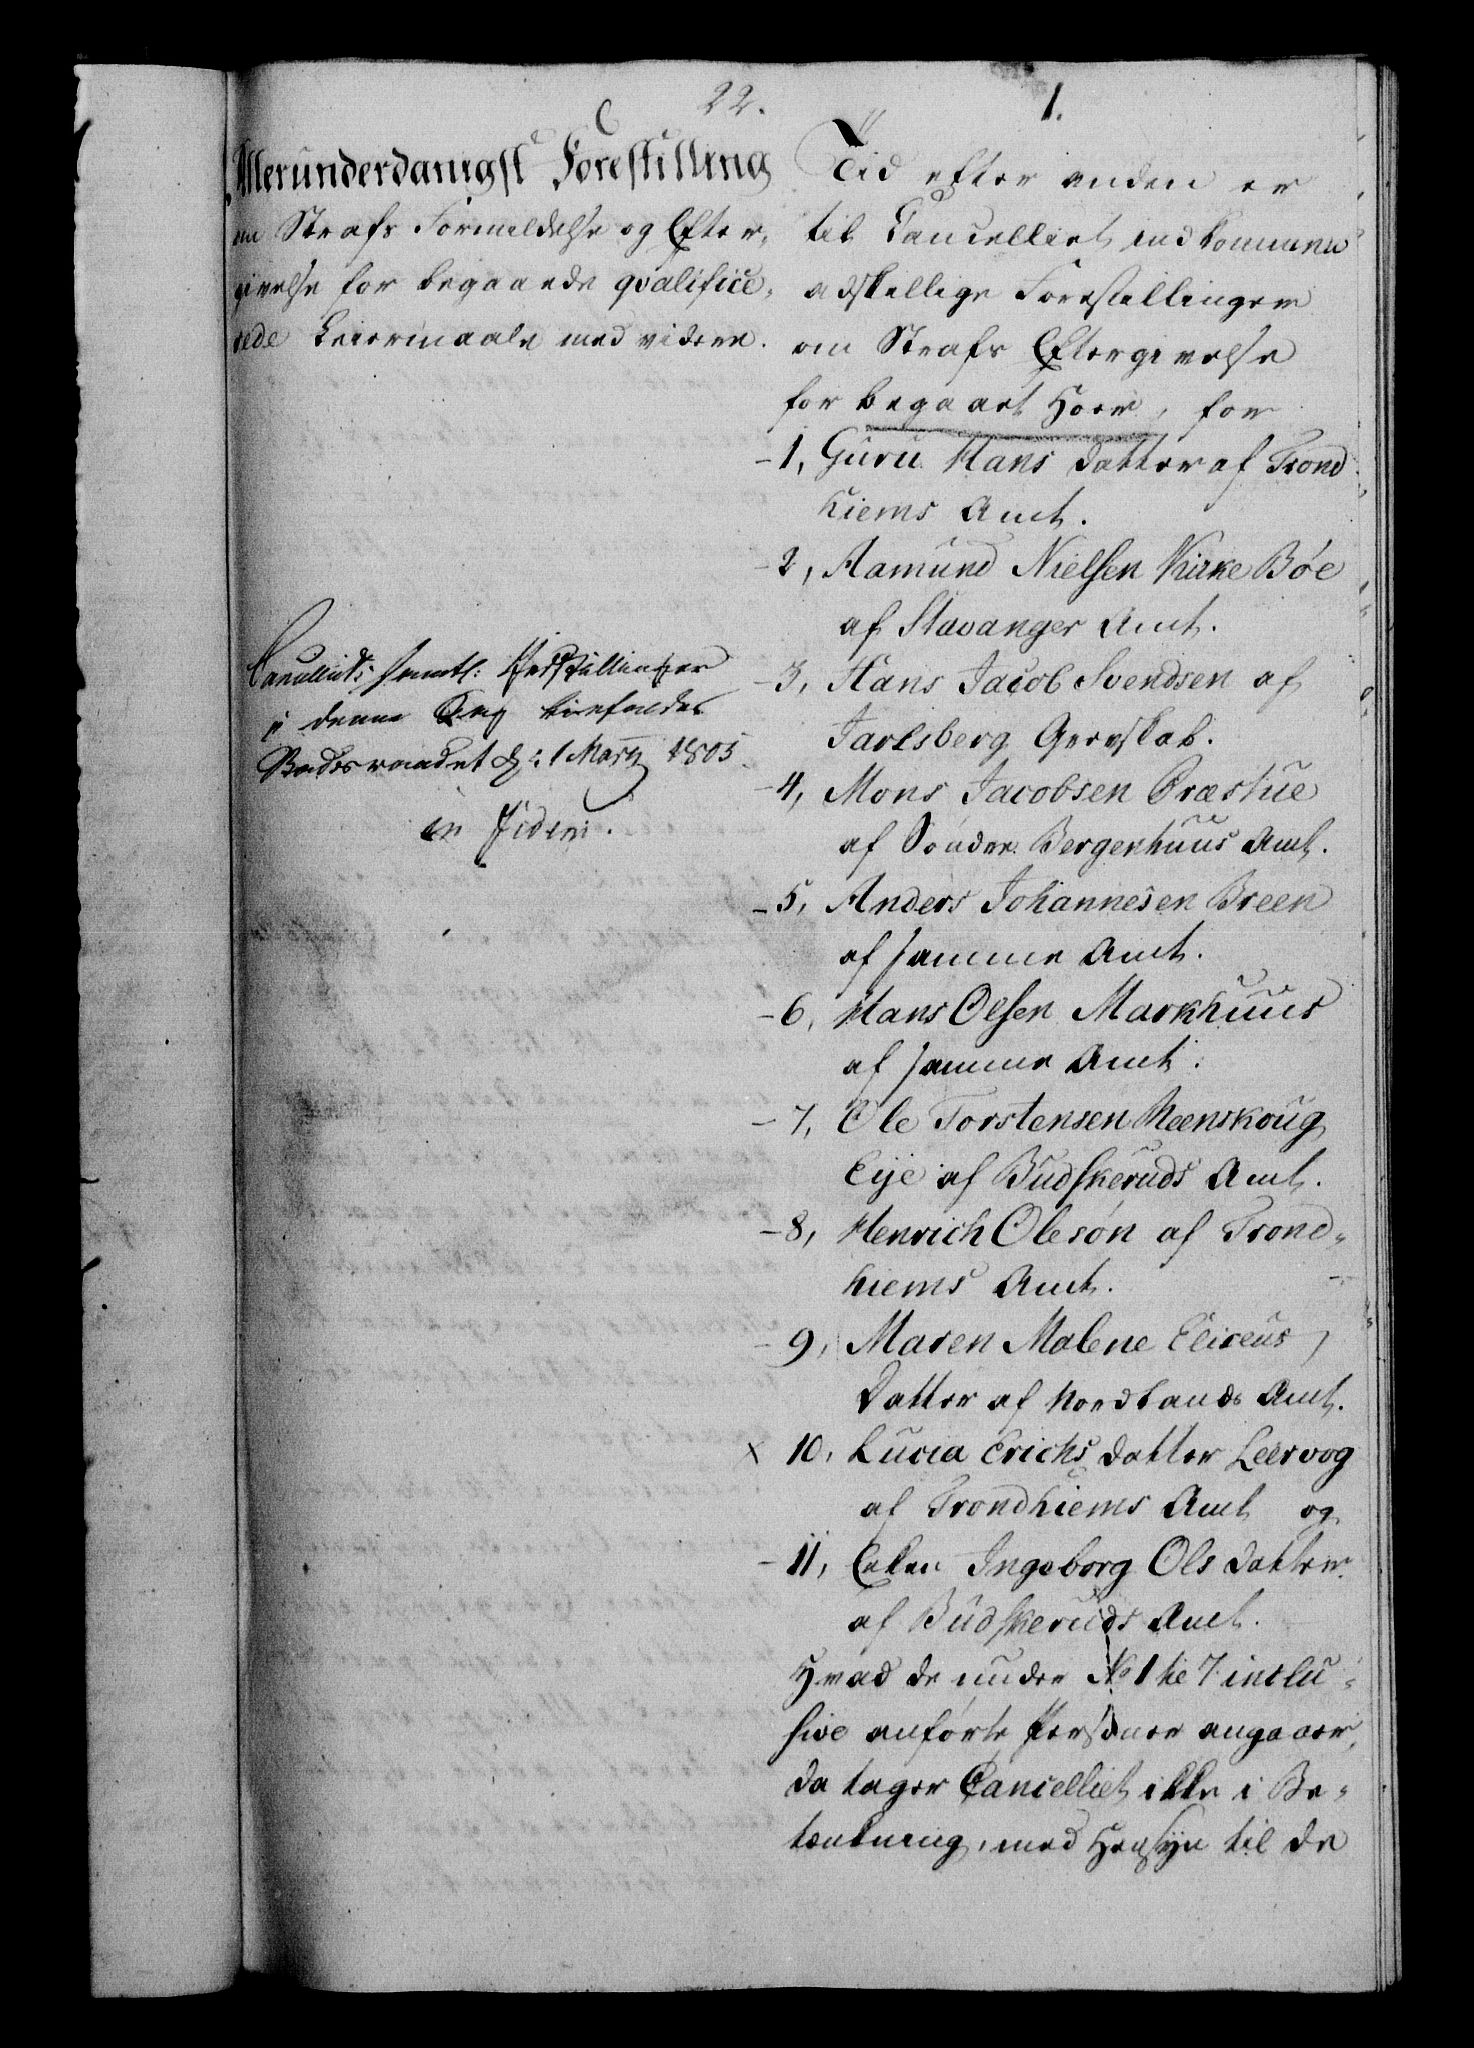 22.
Allerunderdanigst Forestilling
om Strafs Formildelse og Efter,
givelse for begaaede qvalifice,
rede Leiermaale med videre.
Cancelliets samtl: Indstillinger
i denne Sag bifaldes
den 1 Marty 1805.
1.
Tid efter anden er
til Cancelliet indkommen
adskillige Forestillinger
om Strafs Eftergivelse
for begaaet Hoer, for
1, Guru Hans datter af Trond
hiems Amt.
2, Aamund Nielsen Kirke Bøe
af Stavanger Amt.
3, Hans Jacob Svendsen af
Jarlsberg Grevskab.
4, Mons Jacobsen Præstue
af Sønder Bergenhuus Amt.
5, Anders Johannesen Breen
af samme Amt.
6, Hans Olsen Markhuus
af samme Amt.
7, Ole Torstensen Meenskoug
Eije af Budskeruds Amt.
8, Henrich Olesøn af Trond-
hiems Amt.
9, Maren Malene Eliseus
Datter af Nordlands Amt.
x 10, Lucia Erichs datter Leervog
af Trondhiems Amt og
11, Enken Ingeborg Ols datter
af Budskeruds Amt.
Hvad de under No 1 til 7 inclu-
sive anførte Personer angaaer,
da tager Cancelliet ikke i Be-
tænkning, med Hensyn til de